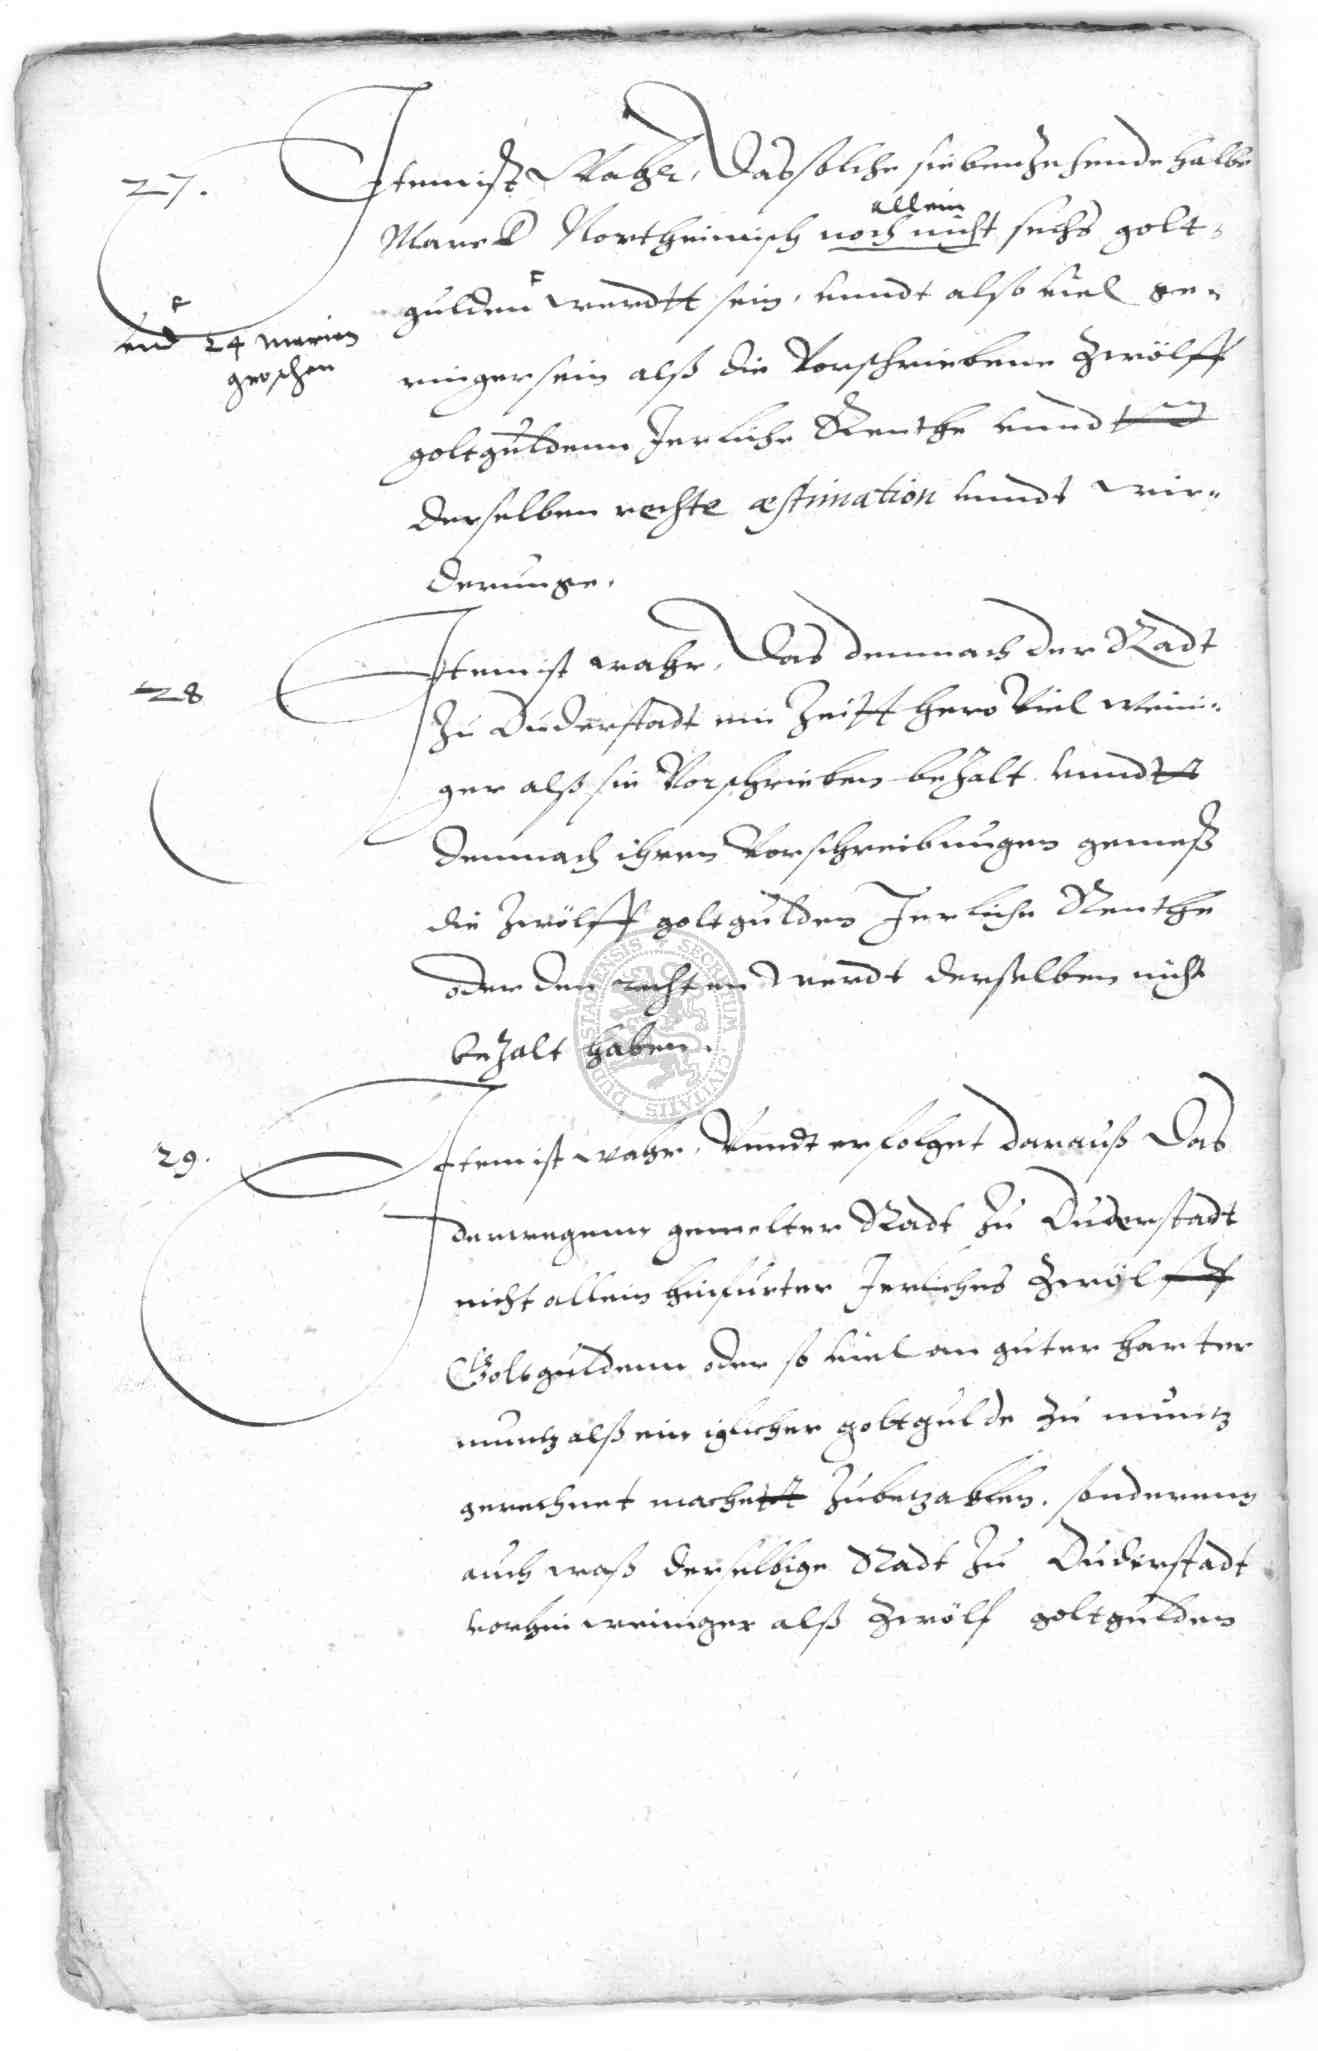 27. Item ist Wahr, Das solche siebenzehende halbe
allein
Marck Northeimisch noch nicht sechs golt-
gulden F werdtt sein, unndt also viel ge-
F
und 24 marien
groschen
ringer sein alß die Vorschriebene Zwölff
goltguldenn Jerliche Renthe unndt
derselben rechte æstimation unndt wir-
derunge.
28 Item ist wahr, Das demnach der Radt
Zu Duderstadt ein Zeitt hero Viel weini-
ger alß sie Vorschrieben beZalt unndtt
demnach ihren Vorschreibungen gemeß
die Zwölff goltgulden Jerliche Renthe
oder den rechten werdt derselben nicht
beZalt haben.
29. Item ist wahr, Unndt erfolget darauß Das
derwegenn gemelter Radt Zu Duderstadt
nicht allein hinfurter Jerliches Zwölff
Goltguldenn oder so viel an guter harter
muntz alß ein iglicher goltgulde Zu muntz
gerechnet machett Zubetzahlen, sonderenn
auch waß derselbige Radt Zu Duderstadt
vorhin weiniger alß Zwölf goltgulden
SECRETUM CIVITATIS DUDERSTADENSIS